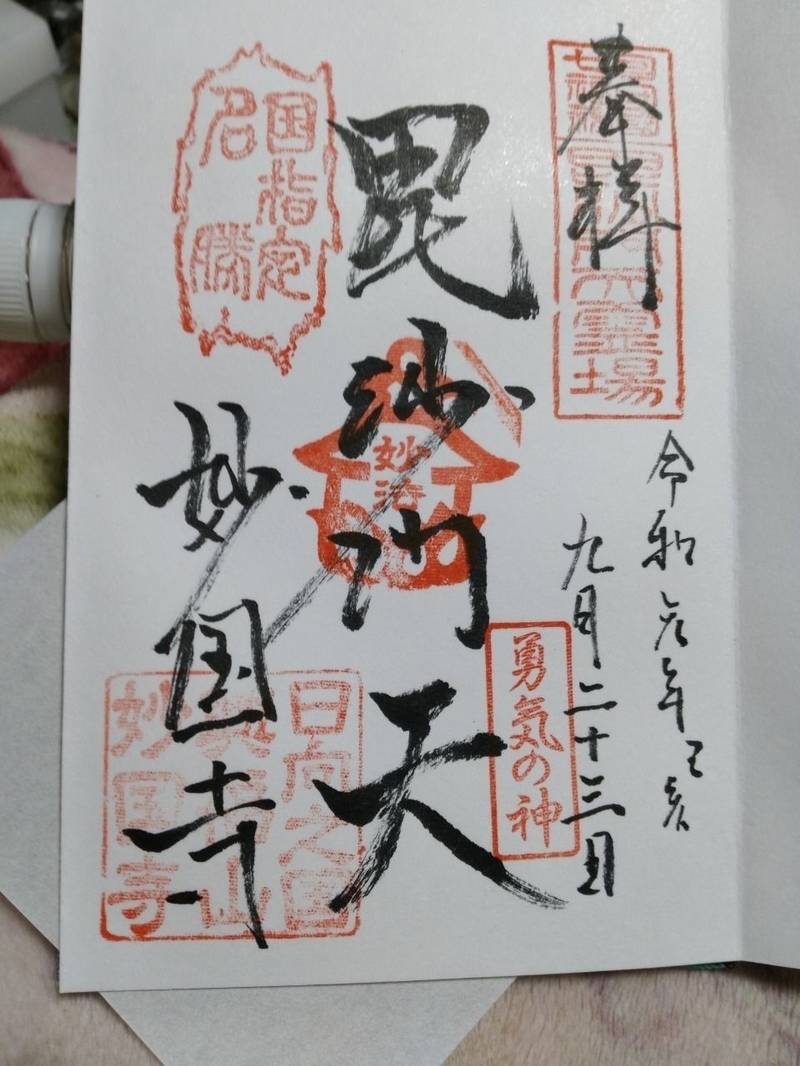 奉拝
令和元年己亥
九月二十三日
勇気の神
毘沙門天
妙法
国指定
名勝
妙国寺
日向之国
妙国寺